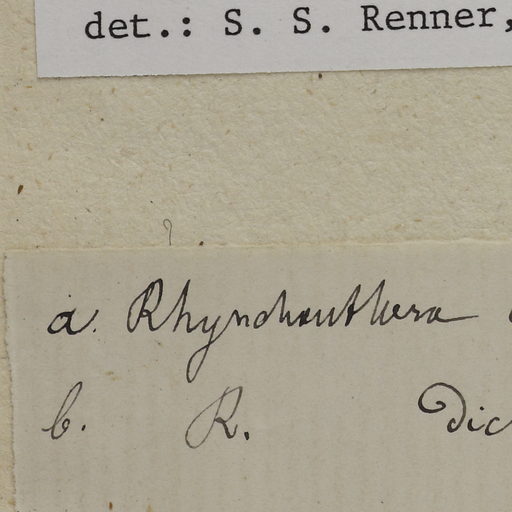 det.: S. S. Renner,
a. Rhynchanthera
b. R. Dic